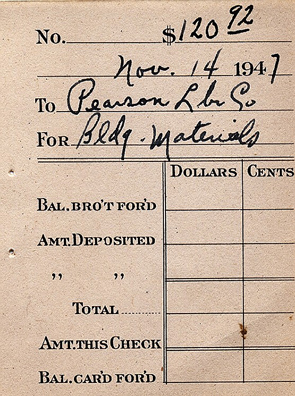 No. $120 92
Nov. 14 1947
To Pearson Lbr Co
For Bldg. Materials
Dollars Cents
Bal. bro't for'd
Amt. Deposited
,, ,,
Total
Amt. this Check
Bal. car'd for'd